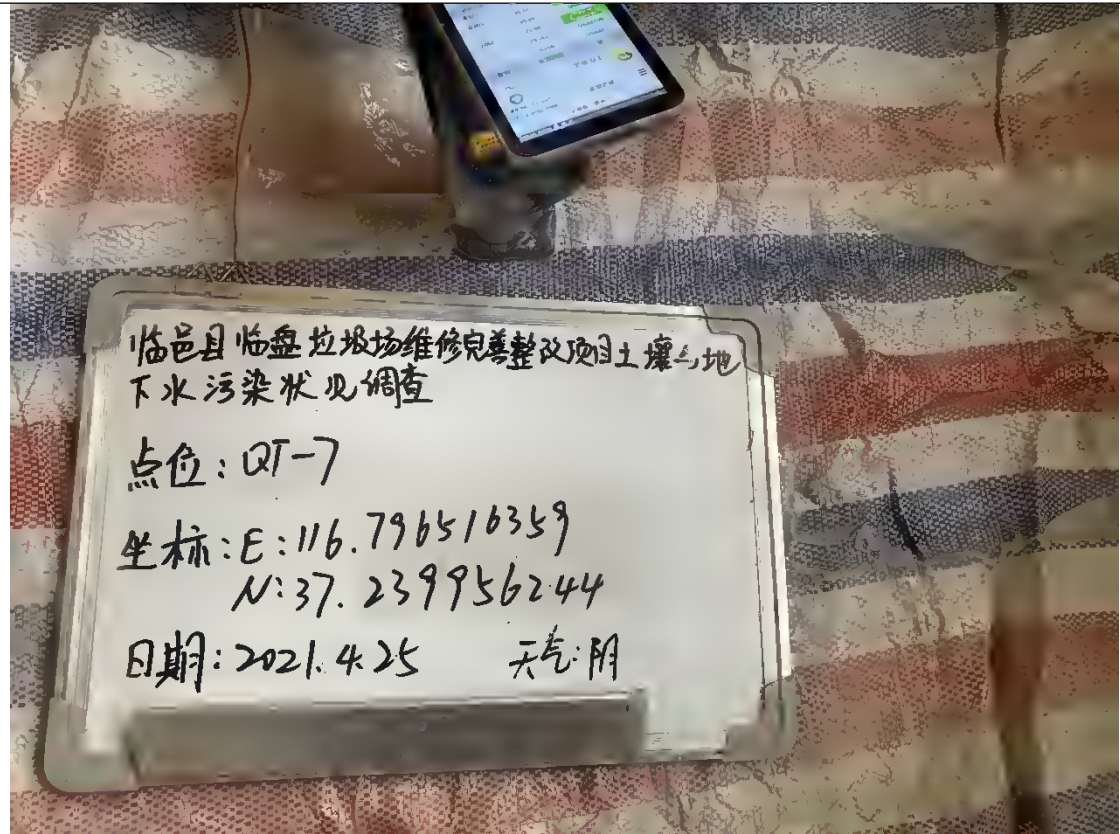 临邑县临盘垃圾场维修完善整改项目土壤与地
下水污染状况调查
点位:QT-7
坐标:E:116.796516359
N:37.239956244
日期:2021.4.25 天气:阴